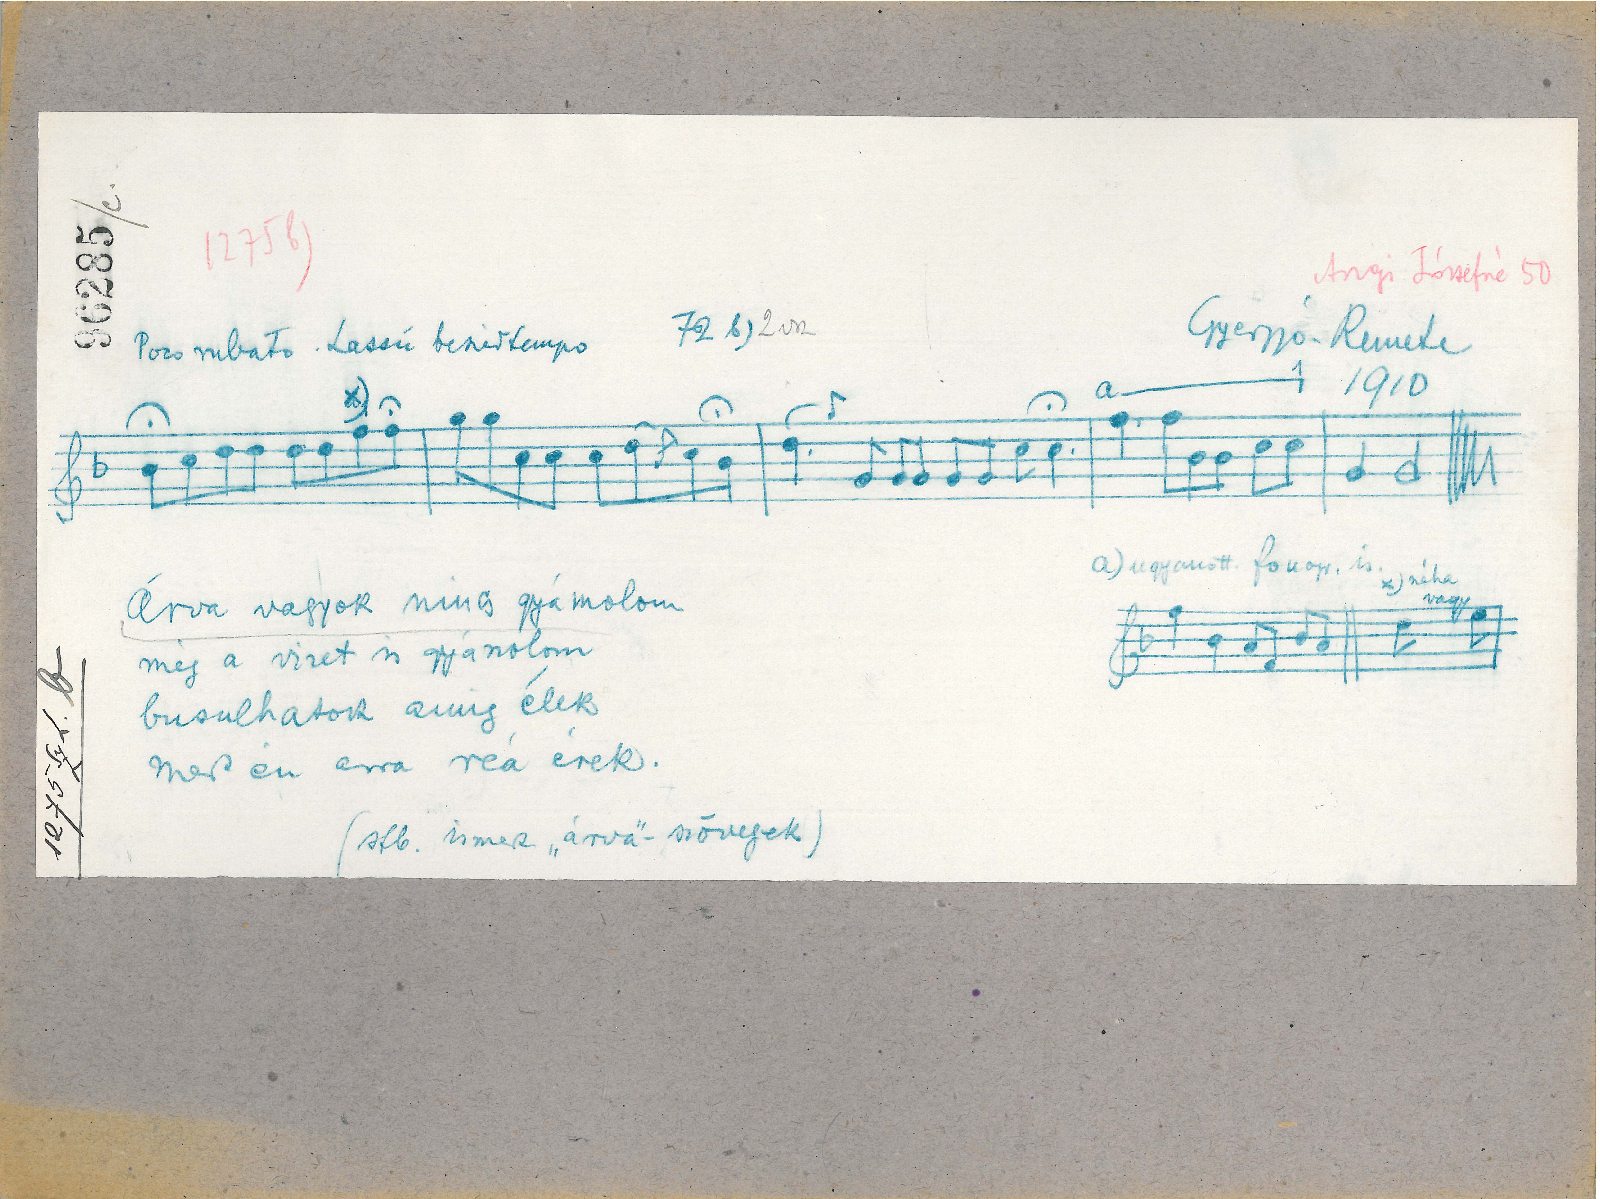 96285/c.
1275 b)
Angi Józsefné 50
Poco rubato. Lassú beszédtempo
72 b) 2 vsz
Gyergyó-Remete
1910
x)
a 1
a) ugyanott. fonogr. is.
x) néha
vagy
Árva vagyok nincs gyámolom
még a vizet is gyászolom
busulhatok amig élek
mert én arra réá érek.
(stb. ismer „árva"-szövegek)
1275